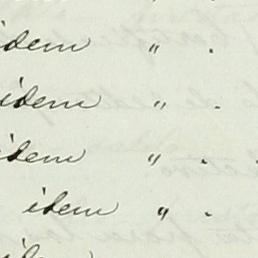 idem " .
idem " .
idem " .
idem " .
idem